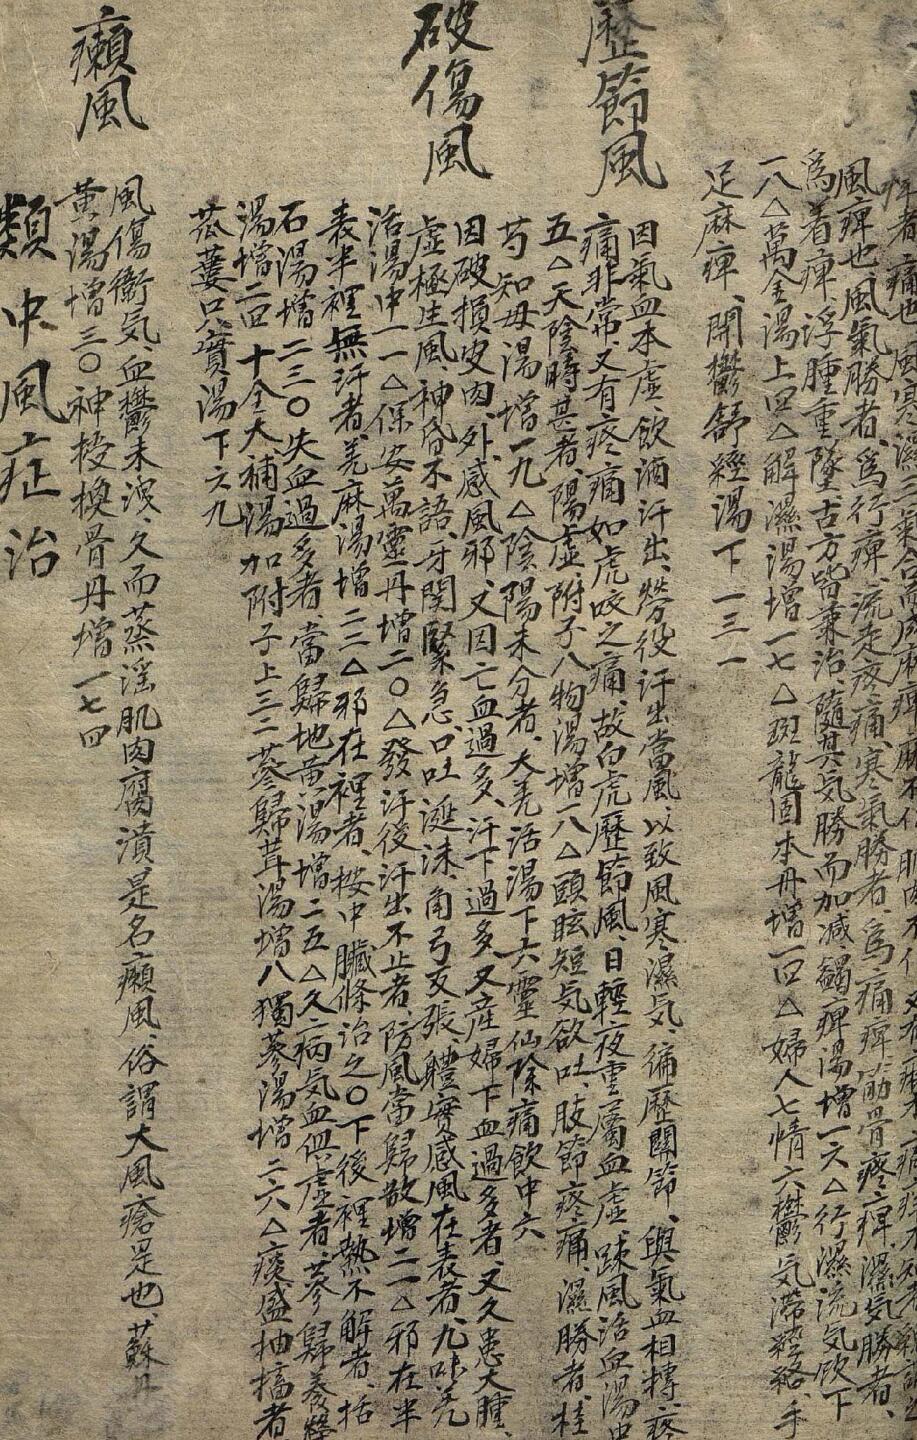 痺者、痛也、風寒濕三氣合而成麻痺
風痺也、風氣勝者、爲行痺、流走疼痛、寒氣勝者、爲痛痺、筋骨疼痺、濕気勝者、
爲着痺、浮腫重墜、古方皆兼治、隨其気勝而加減、蠲痺湯增一六△行濕流気飲下
一八△萬金湯上四△解濕湯增一七△斑龍固本丹增一四△婦人七情六鬱、気滯経絡、手
足麻痺、開鬱舒經湯下一三一
歷節風
因氣血本虛、飲酒汗出、勞役汗出當風、以致風寒濕気、徧歷關節、與氣血相搏、疼
痛非常、又有疼痛如虎咬之痛、故白虎歷節風、日輕夜重屬血虛、踈風活血湯中
五△天陰時甚者、陽虛、附子八物湯增一八△頭眩短気欲吐、肢節疼痛、濕勝者、桂
芍知母湯增一九△陰陽未分者、大羌活湯下六靈仙除痛飲中六
破傷風
因破損皮肉、外感風邪、又因亡血過多、汗下過多、又産婦下血過多者、又久患大腫、
虛極生風、神昏不語、牙関緊急、口吐涎沫、角弓反張、軆實感風在表者、九味羌
活湯中一一△保安萬靈丹增二〇△發汗後汗出不止者、防風當歸散增二一△邪在半
表半裡無汗者、羌麻湯增二二△邪在裡者、按中臟條治之〇下後裡熱不解者、括
石湯增二三〇失血過多者、當歸地黄湯增二五△久病気血俱虛者、蔘歸養榮
湯增二四十全大補湯加附子上三二蔘歸茸湯增八獨蔘湯增二六△痰盛抽搐者
苽蔞只實湯下六九
癩風
風傷衞気、血鬱未洩、久而蒸淫肌肉腐潰是名癩風、俗謂大風瘡是也、蘇
黄湯增三〇神授換骨丹增一七四
類中風症治